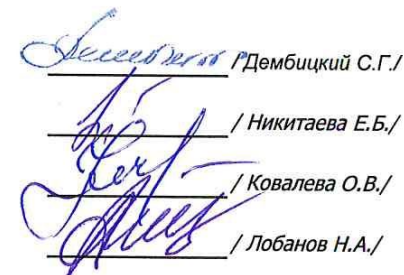 /Дембицкий С.Г./
/ Никитаева Е.Б./
/ Ковалева О.В./
/ Лобанов Н.А./